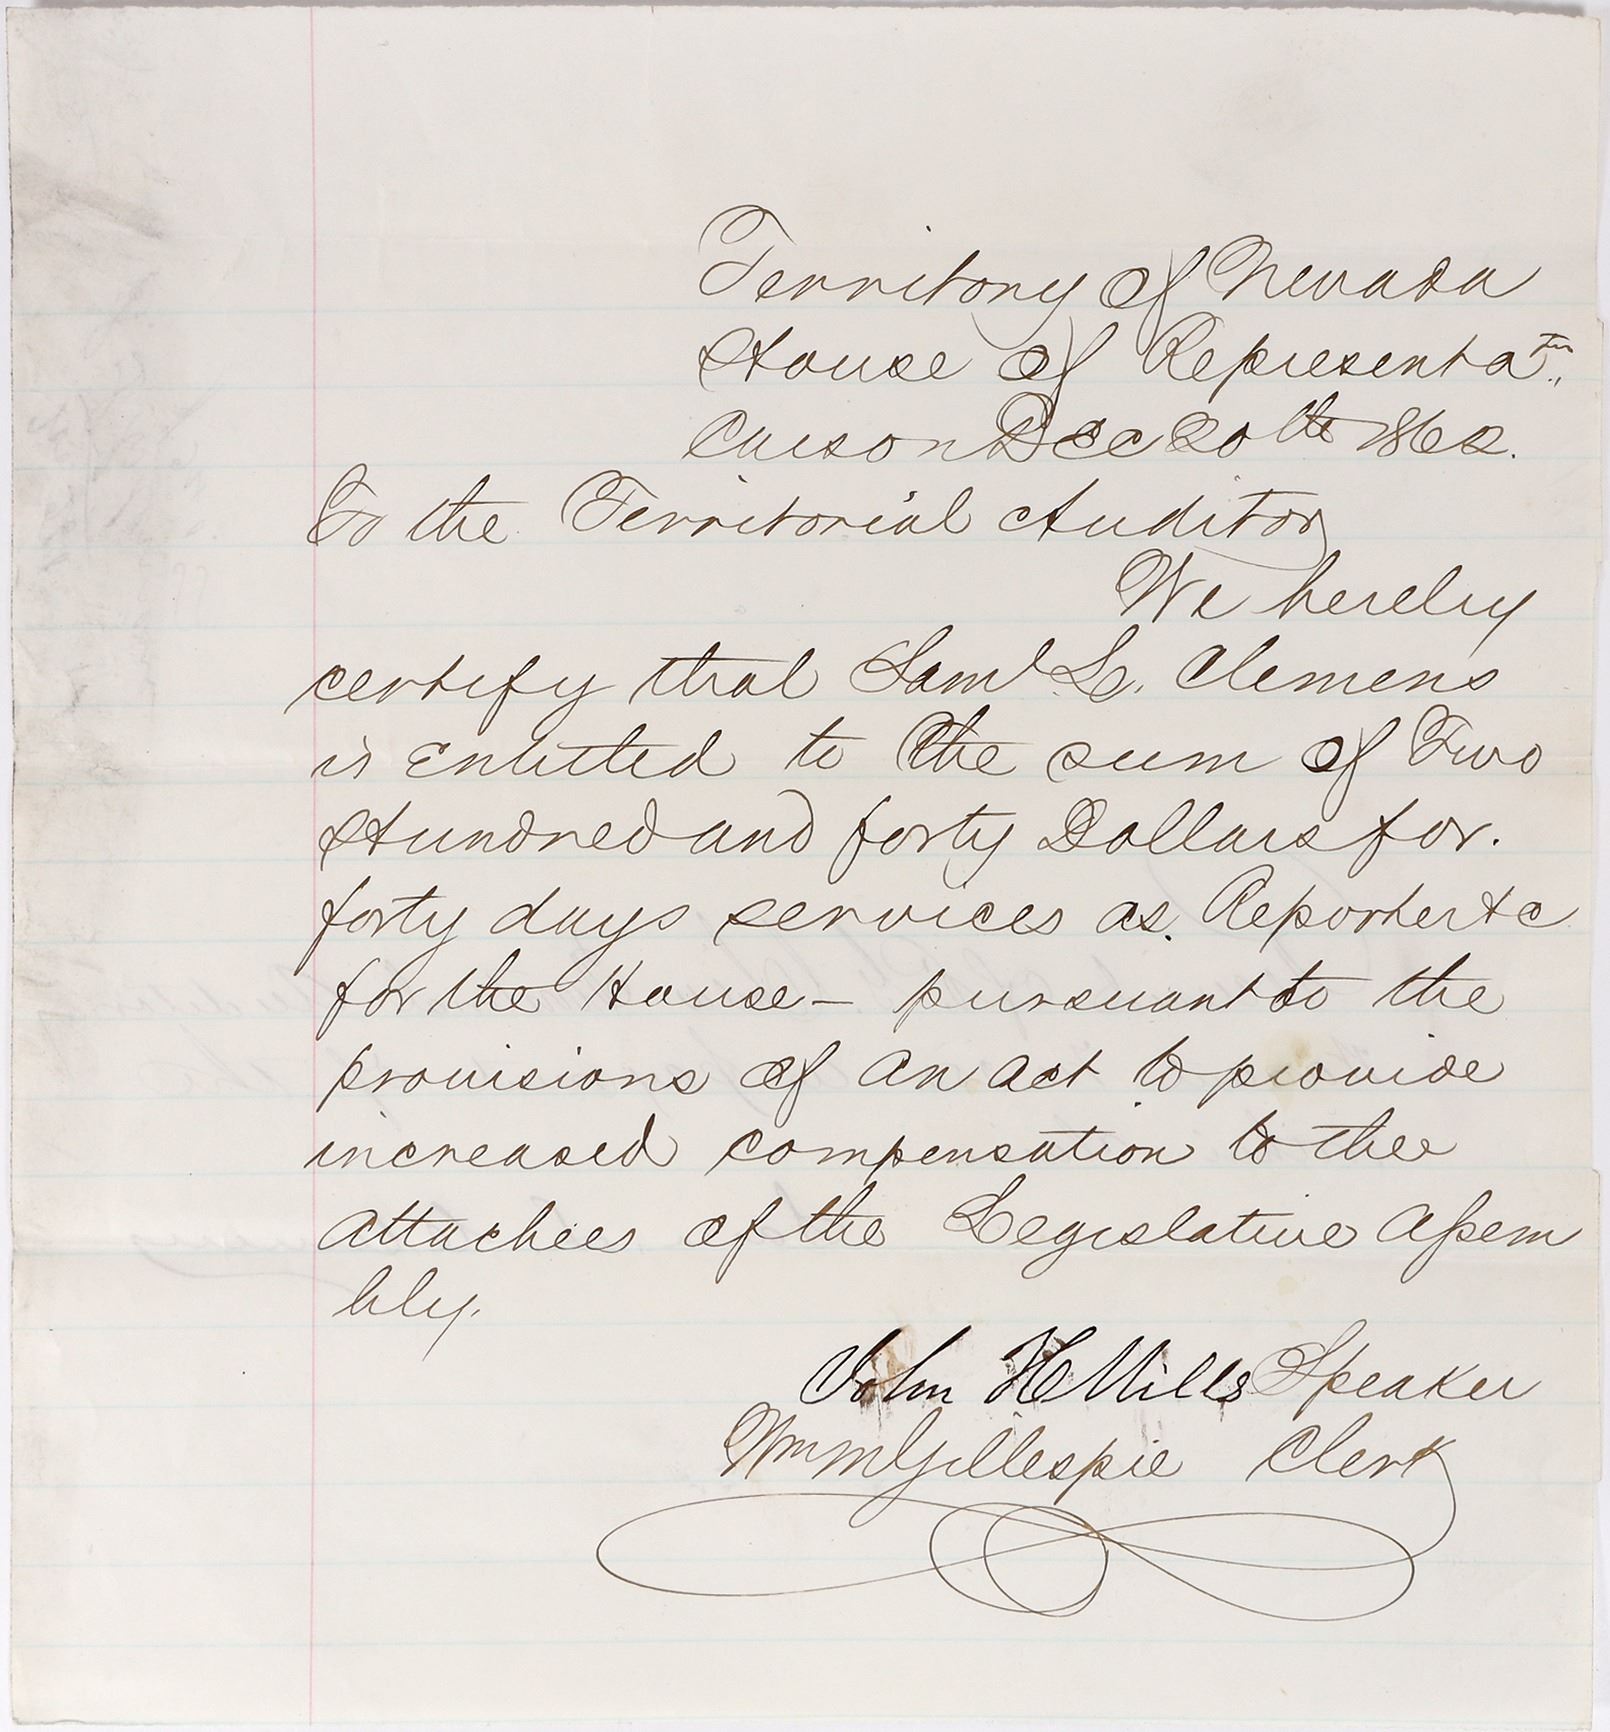 Territory of Nevada
House of Representa^tvs
Carson Dec 20th 1862.
To the Territorial Auditor
We hereby
certify that Saml L. Clemens
is entitled to the sum of Two
Hundred and forty Dollars for.
forty days services as. Reporter &c
for the House — pursuant to the
provisions of an act to provide
increased compensation to the
attachees of the Legislative Assem
bly.
John H Mills Speaker
Wm M Gillespie Clerk